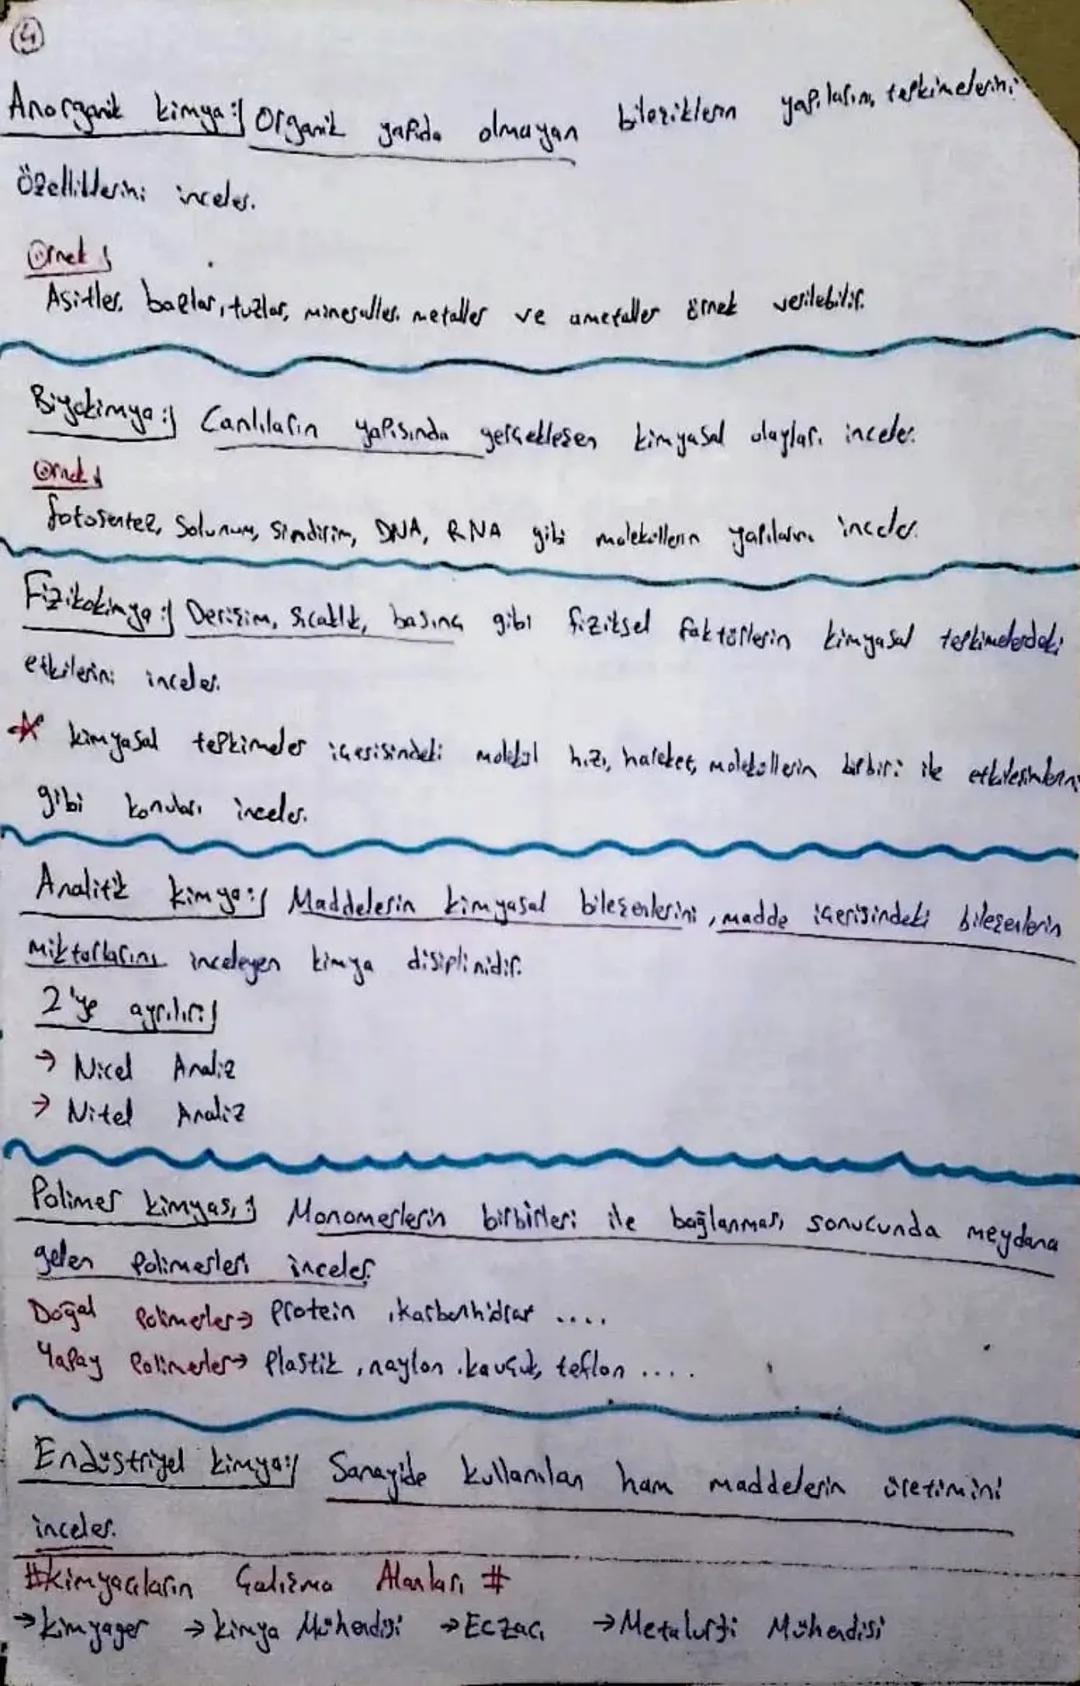 4
Anorganik kimya: Organik yapıda olmayan bileşiklerin yapılarını, tepkimelerini,
Özelliklerini inceler.
Örnek
Asitler, bazlar, tuzlar, mineraller, metaller ve ametaller örnek verilebilir.
Biyokimya: Canlıların yapısında gerçekleşen kimyasal olayları inceler.
Örnek
fotosentez, Solunum, Sindirim, DNA, RNA gibi moleküllerin yapılarını inceler.
Fizikokimya: Derişim, Sıcaklık, basınç gibi fiziksel faktörlerin kimyasal tepkimelerdeki
etkilerini inceler.
* kimyasal tepkimeler içerisindeki molekül hızı, hareket, moleküllerin birbiri ile etkileşimlerini
gibi konuları inceler.
Analitik kimya: Maddelerin kimyasal bileşenlerini, madde içerisindeki bileşenlerin
miktarlarını inceleyen kimya disiplinidir.
2'ye ayrılır:
→ Nicel Analiz
→ Nitel Analiz
Polimer kimyası: Monomerlerin birbirleri ile bağlanması sonucunda meydana
gelen polimerleri inceler.
Doğal polimerler→ protein, karbonhidrat ....
Yapay polimerler→ Plastik, naylon, kauçuk, teflon ....
Endüstriyel kimya: Sanayide kullanılan ham maddelerin üretimini
inceler.
#Kimyacıların Çalışma Alanları #
→kimyager →kimya Mühendisi →Eczacı →Metalurji Mühendisi